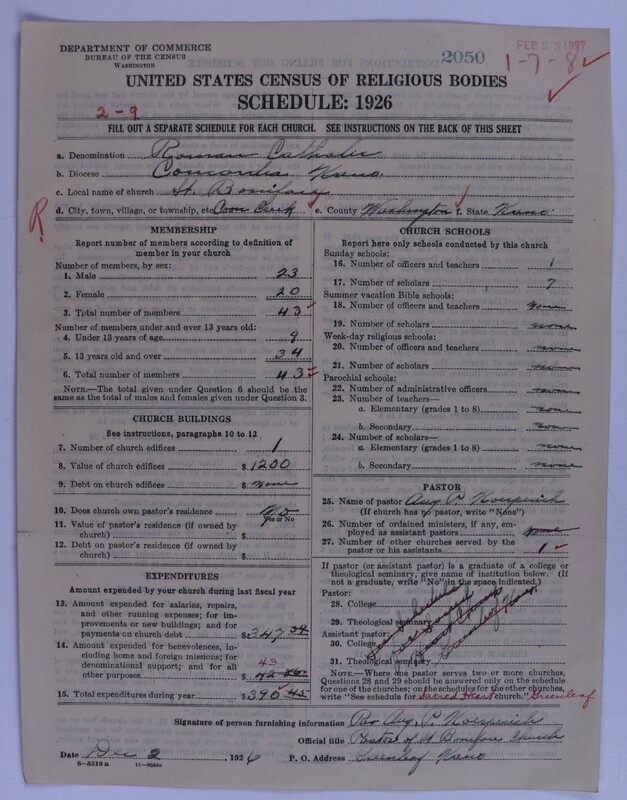 DEPARTMENT OF COMMERCE
BUREAU OF THE CENSUS
WASHINGTON
2050
FEB 2 1927
1-7-8
UNITED STATES CENSUS OF RELIGIOUS BODIES
SCHEDULE: 1926
2-9
FILL OUT A SEPARATE SCHEDULE FOR EACH CHURCH. SEE INSTRUCTIONS ON THE BACK OF THIS SHEET
a. Denomination Roman Catholic
b. Diocese Concordia Kans.
c. Local name of church St. Boniface
d. City, town, village, or township, etc. Coon Creek e. County Washington f. State Kans.
R
MEMBERSHIP
Report number of members according to definition of member in your church
Number of members, by sex:
1. Male 23
2. Female 20
3. Total number of members 43
Number of members under and over 13 years old:
4. Under 13 years of age 9
5. 13 years old and over 34
6. Total number of members 43
NOTE.—The total given under Question 6 should be the same as the total of males and females given under Question 3.
CHURCH BUILDINGS
See instructions, paragraphs 10 to 12
7. Number of church edifices 1
8. Value of church edifices $ 1200
9. Debt on church edifices $ None
10. Does church own pastor's residence No
Yes or No
11. Value of pastor's residence (if owned by church) $
12. Debt on pastor's residence (if owned by church) $
EXPENDITURES
Amount expended by your church during last fiscal year
13. Amount expended for salaries, repairs, and other running expenses; for improvements or new building; and for payments on church debt $ 347
14. Amount expended for benevolences, including home and foreign missions; for denominational support; and for all other purposes 43
15. Total expenditures during year $ 390 45
CHURCH SCHOOLS
Report here only schools conducted by this church
Sunday schools:
16. Number of officers and teachers 1
17. Number of scholars 7
Summer vacation Bible schools:
18. Number of officers and teachers None
19. Number of scholars none
Week-day religious schools:
20. Number of officers and teachers none
21. Number of scholars none
Parochial schools:
22. Number of administrative officers none
23. Number of teachers—
a. Elementary (grades 1 to 8) none
b. Secondary none
24. Number of scholars—
a. Elementary (grades 1 to 8) none
b. Secondary none
PASTOR
25. Name of pastor Aug. P.
(If church has no pastor, write "None")
26. Number of ordained ministers, if any, employed as assistant pastors None
27. Number of other churches served by the pastor or his assistants 1
If pastor (or assistant pastor) is a graduate of a college or theological seminary, give name of institution below. (If not a graduate, write "No" in the space indicated.)
Pastor:
28. College
29. Theological seminary
Assistant pastor:
30. College
31. Theological seminary
NOTE.—Where one pastor serves two or more churches, Questions 28 and 29 should be answered only on the schedule for one of the churches; on the schedules for the other churches, write "See schedule for Sacred Heart church." Greenleaf
Signature of person furnishing information Rev Aug. P.
Official title Pastor of St Boniface Church
Date Dec 2, 1926 P. O. Address Greenleaf Kans
8-5318 a